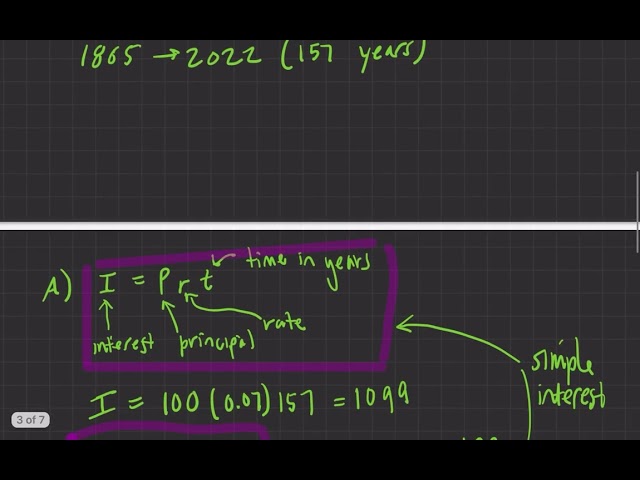 1865 → 2022 (157 years)
A) I = P r t time in years
interest principal rate
simple
interest
I = 100 (0.07) 157 = 1099
3 of 7